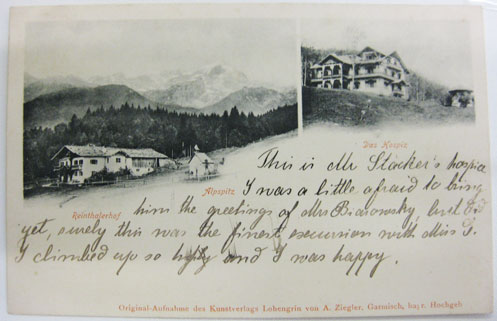 Das Hospiz
Alpspitz
Reinthalerhof
This is Mr Stöcker's hospice
I was a little afraid to bring
him the greetings of Mrs but did
yet, surely this was the finest excursion with Miss G.
I climbed up so highly and I was happy.
Original-Aufnahme des Kunstverlags Lohengrin von A. Ziegler, Garmisch, bayr. Hochgeb